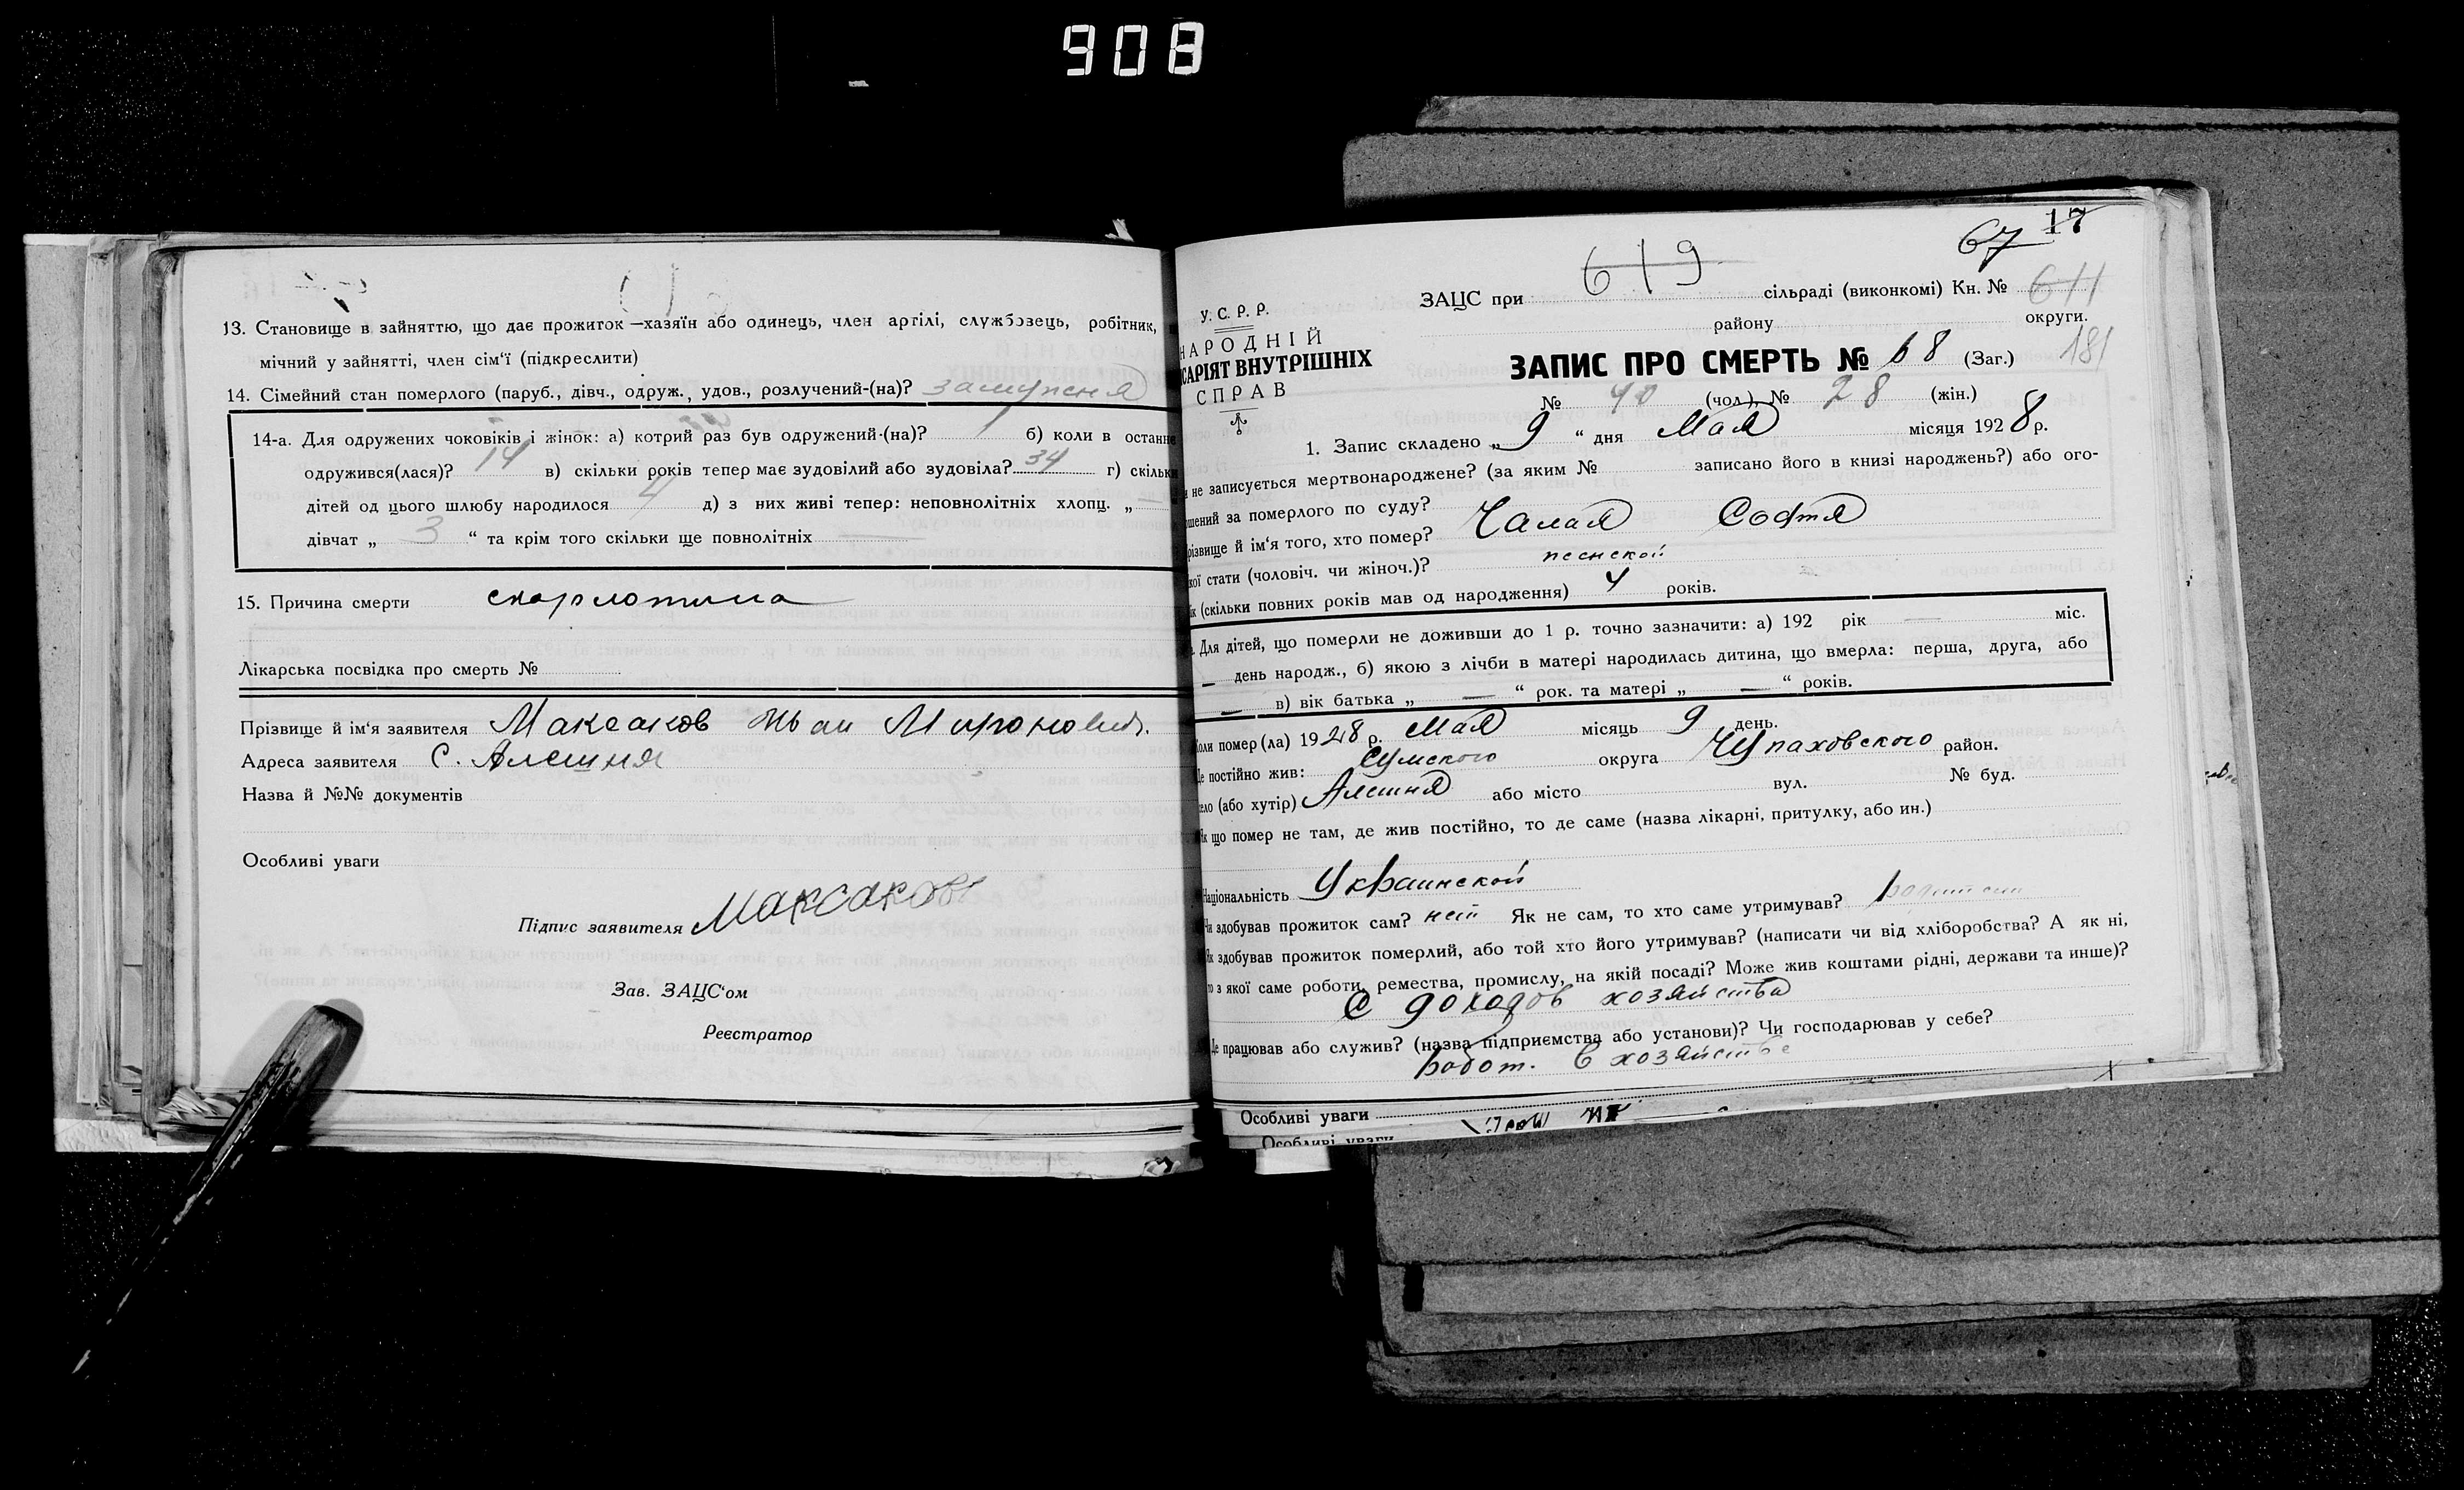 908
13. Становище в зайняттю, що дає прожиток—хазяїн або одинець, член артілі, службовець, робітник,
мічний у зайнятті, член сім'ї (підкреслити)
14. Сімейний стан померлого (паруб., дівч., одруж., удов., розлучений-(на)? замужня
14-а. Для одружених чоковіків і жінок: а) котрий раз був одружений-(на)? 1 б) коли в останнє
одружився(лася)? 14 в) скільки років тепер має зудовілий або зудовіла? 34 г) скільки
дітей од цього шлюбу народилося 4 д) з них живі тепер: неповнолітніх хлопц. „ —
дівчат „ 3 “ та крім того скільки ще повнолітніх —
15. Причина смерти скорлотина
Лікарська посвідка про смерть №
Прізвище й ім'я заявителя Максаков Иван Миронович.
Адреса заявителя С. Алешня
Назва й №№ документів
Особливі уваги
Підпис заявителя Максаков
Зав. ЗАЦС'ом
Реєстратор
67 17
У. С. Р. Р.
НАРОДНІЙ
САРІЯТ ВНУТРІШНІХ
СПРАВ
ЗАЦС при 619 сільраді (виконкомі) Кн. № 611
району округи.
ЗАПИС ПРО СМЕРТЬ № 68 (Заг.) 181
№ 40 (чол.), № 28 (жін.)
1. Запис складено „ 9 “ дня Мая місяця 1928 р.
и не записується мертвонароджене? (за яким № записано його в книзі народжень?) або ого-
шений за померлого по суду?
різвище й ім'я того, хто помер? Чалая Софія
кої стати (чоловіч. чи жіноч.)? женской
ік (скільки повних років мав од народження) 4 років.
Для дітей, що померли не доживши до 1 р. точно зазначити: а) 192 рік — міс.
— день народж., б) якою з лічби в матері народилась дитина, що вмерла: перша, друга, або
— в) вік батька „ — “ рок. та матері „ — “ років.
Коли помер (ла) 1928 р. Мая місяць 9 день.
Де постійно жив: Сумского округа Чупаховского район.
село (або хутір) Алешня або місто вул. № буд.
Як що помер не там, де жив постійно, то де саме (назва лікарні, притулку, або ин.)
Національність Украинской
Чи здобував прожиток сам? нет Як не сам, то хто саме утримував? родители
Як здобував прожиток померлий, або той хто його утримував? (написати чи від хліборобства? А як ні,
то з якої саме роботи, ремества, промислу, на якій посаді? Може жив коштами рідні, держави та инше)?
С доходов хозяйства
Де працював або служив? (назва підприємства або установи)? Чи господарював у себе?
работ. в хозяйстве
Особливі уваги
Особливі уваги